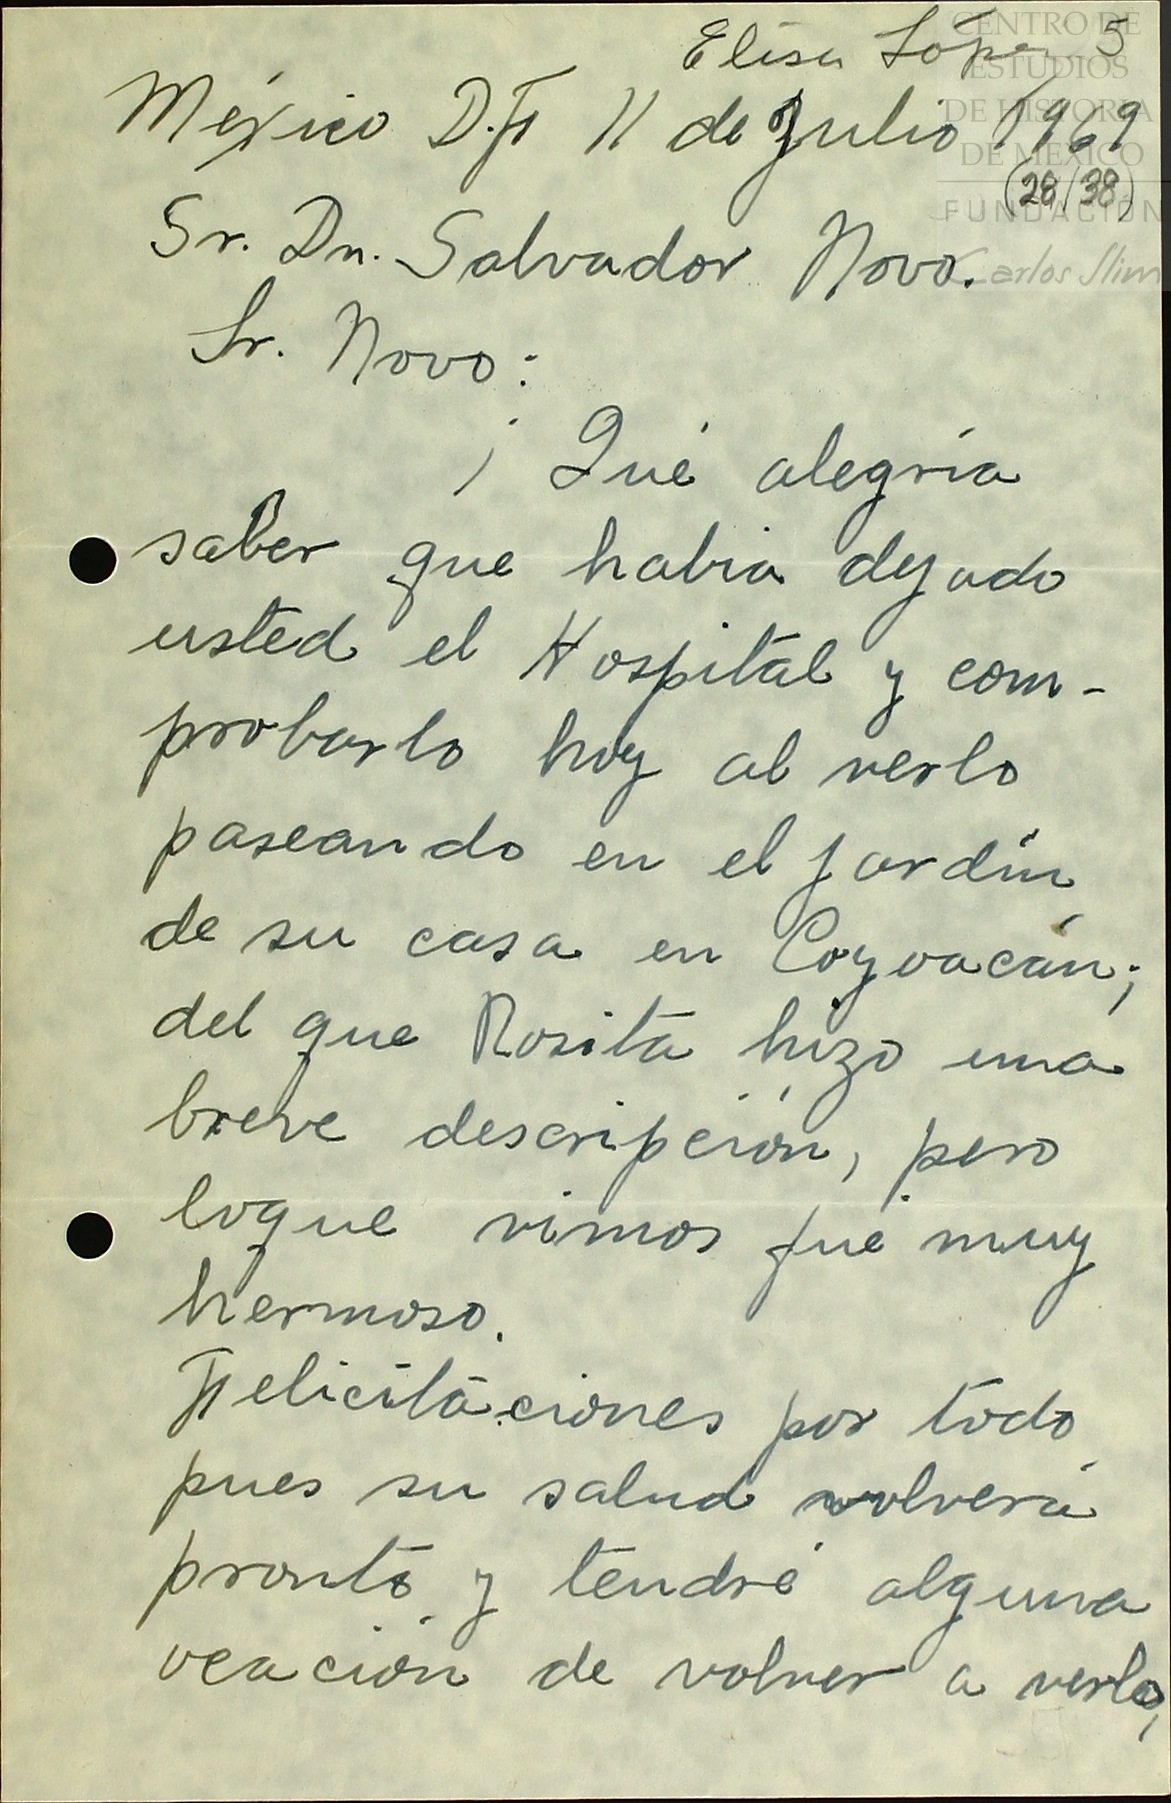 Elisa López 5
México D.F. 11 de Julio 1969
(28/38)
Sr. Dn. Salvador Novo.
Sr. Novo:
¡Qué alegría
saber que había dejado
usted el Hospital y com-
probarlo hoy al verlo
paseando en el jardín
de su casa en Coyoacán;
del que Rosita hizo una
breve descripción, pero
loque vimos fué muy
hermoso.
Felicitaciones por todo
pues su salud volverá
pronto y tendré alguna
ocación de volver a verlo,
CENTRO DE
ESTUDIOS
DE HISTORIA
DE MÉXICO
FUNDACIÓN
Carlos Slim